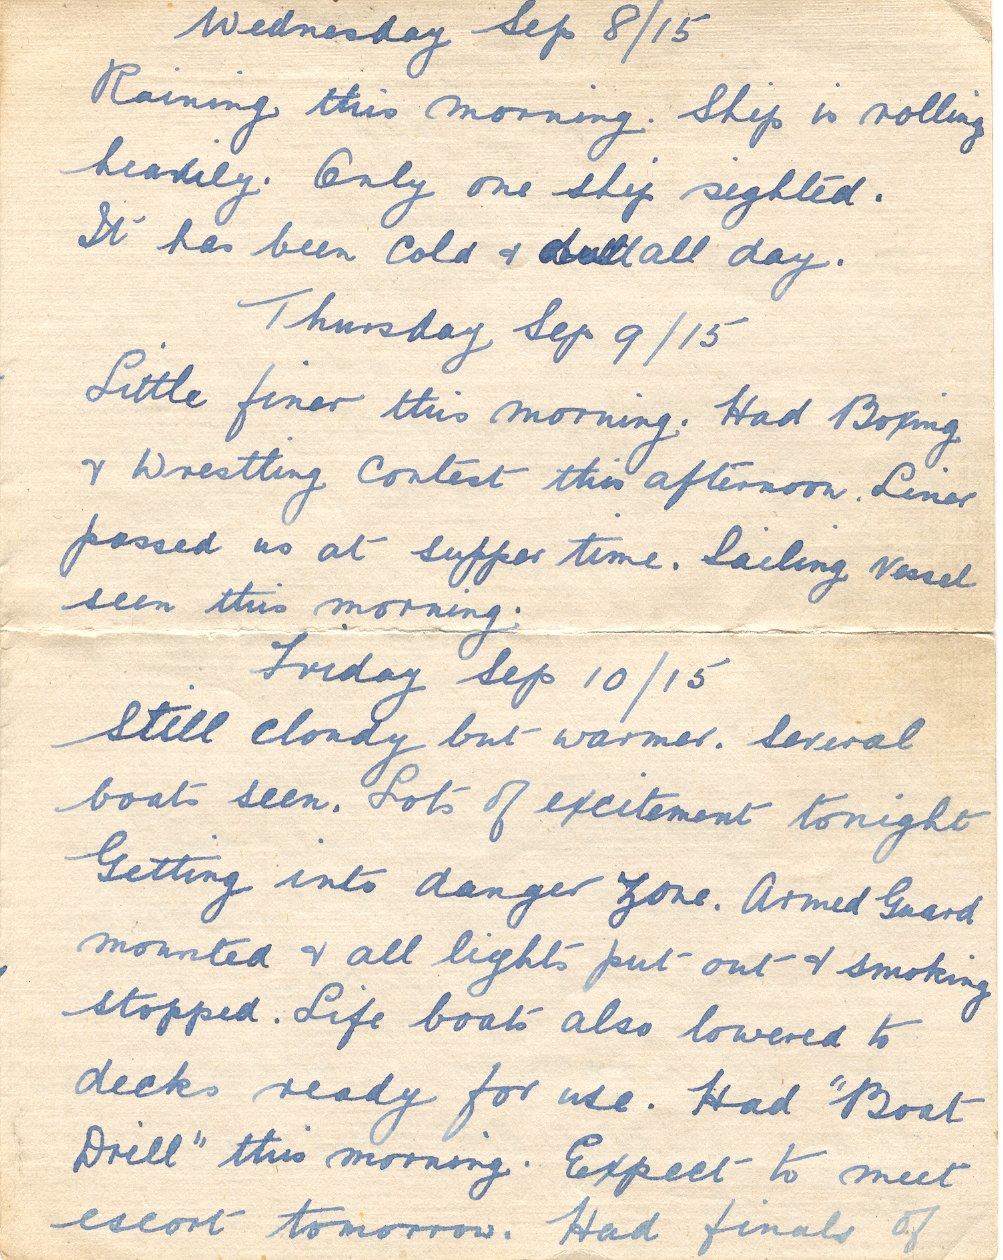 Wednesday Sep 8/15
Raining this morning. Ship is rolling
heavily. Only one ship sighted.
It has been cold & dull all day.
Thursday Sep 9/15
Little finer this morning. Had Boxing
& Wrestling Contest this afternoon. Liner
passed us at supper time. Sailing Vessel
seen this morning.
Friday Sep 10/15
Still cloudy but warmer. Several
boats seen. Lots of excitement tonight
Getting into danger Zone. Armed Guard
mounted & all lights put out & smoking
stopped. Life boats also lowered to
decks ready for use. Had "Boat
Drill" this morning. Expect to meet
escort tomorrow. Had finals of